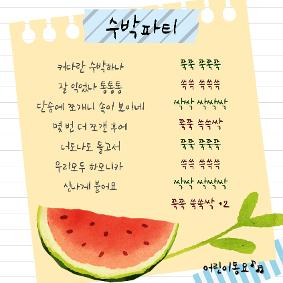 수박파티
커다란 수박하나 쭉쭉 쭉쭉쭉
잘 익었나 통통통 쓱쓱 쓱쓱쓱
단숨에 쪼개니 속이 보이네 싹싹 싹싹싹
몇 번 더 쪼갠 후에 쭉쭉 쓱쓱싹
너도나도 들고서 쭉쭉 쭉쭉쭉
우리모두 하모니카 쓱쓱 쓱쓱쓱
신나게 불어요 싹싹 싹싹싹
쭉쭉 쓱쓱싹 ×2
어린이동요